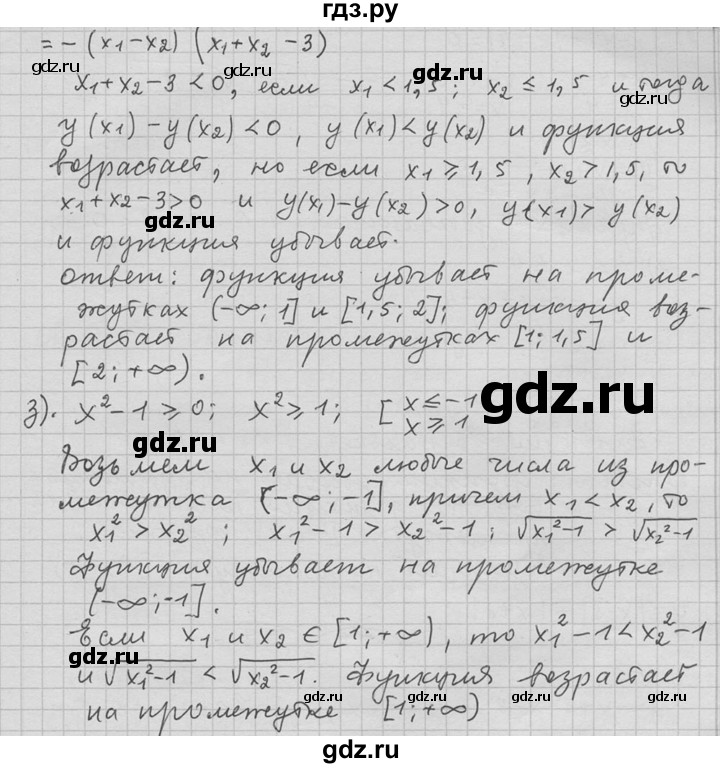 гдз.ру
= − (x₁−x₂) (x₁+x₂ −3)
gdz.ru gdz.ru gdz.ru gdz.ru
x₁+x₂−3 <0, если x₁ <1,5; x₂ ≤ 1,5 и тогда
y (x₁) − y(x₂) <0, y(x₁)<y(x₂) и функция
возрастает, но если x₁ ⩾ 1,5, x₂ > 1,5, то
gdz.ru gdz.ru
x₁+x₂−3>0 и y(x₁)−y(x₂) >0, y(x₁)> y(x₂)
gdz.ru gdz.ru
и функция убывает.
ответ: функция убывает на проме-
жутках (−∞; 1] и [1,5; 2]; функция воз-
gdz.ru gdz.ru
растает на промежутках [1; 1,5] и
[2; +∞).
3). x²−1 ⩾ 0; x² ⩾ 1; [ x ≤ −1
x ⩾ 1
gdz.ru
gdz.ru
Возьмем x₁ и x₂ любые числа из про-
межутка (−∞; −1], причем x₁ < x₂, то
gdz.ru gdz.ru
x₁² > x₂²; x₁²−1 > x₂²−1; √x₁²−1 > √x₂²−1
Функция убывает на промежутке
(−∞; −1].
gdz.ru gdz.ru
Если x₁ и x₂ ∈ [1; +∞), то x₁²−1 < x₂²−1
gdz.ru
и √x₁²−1 < √x₂²−1. Функция возрастает
gdz.ru gdz.ru gdz.ru
на промежутке [1; +∞)
gdz.ru
gdz.ru